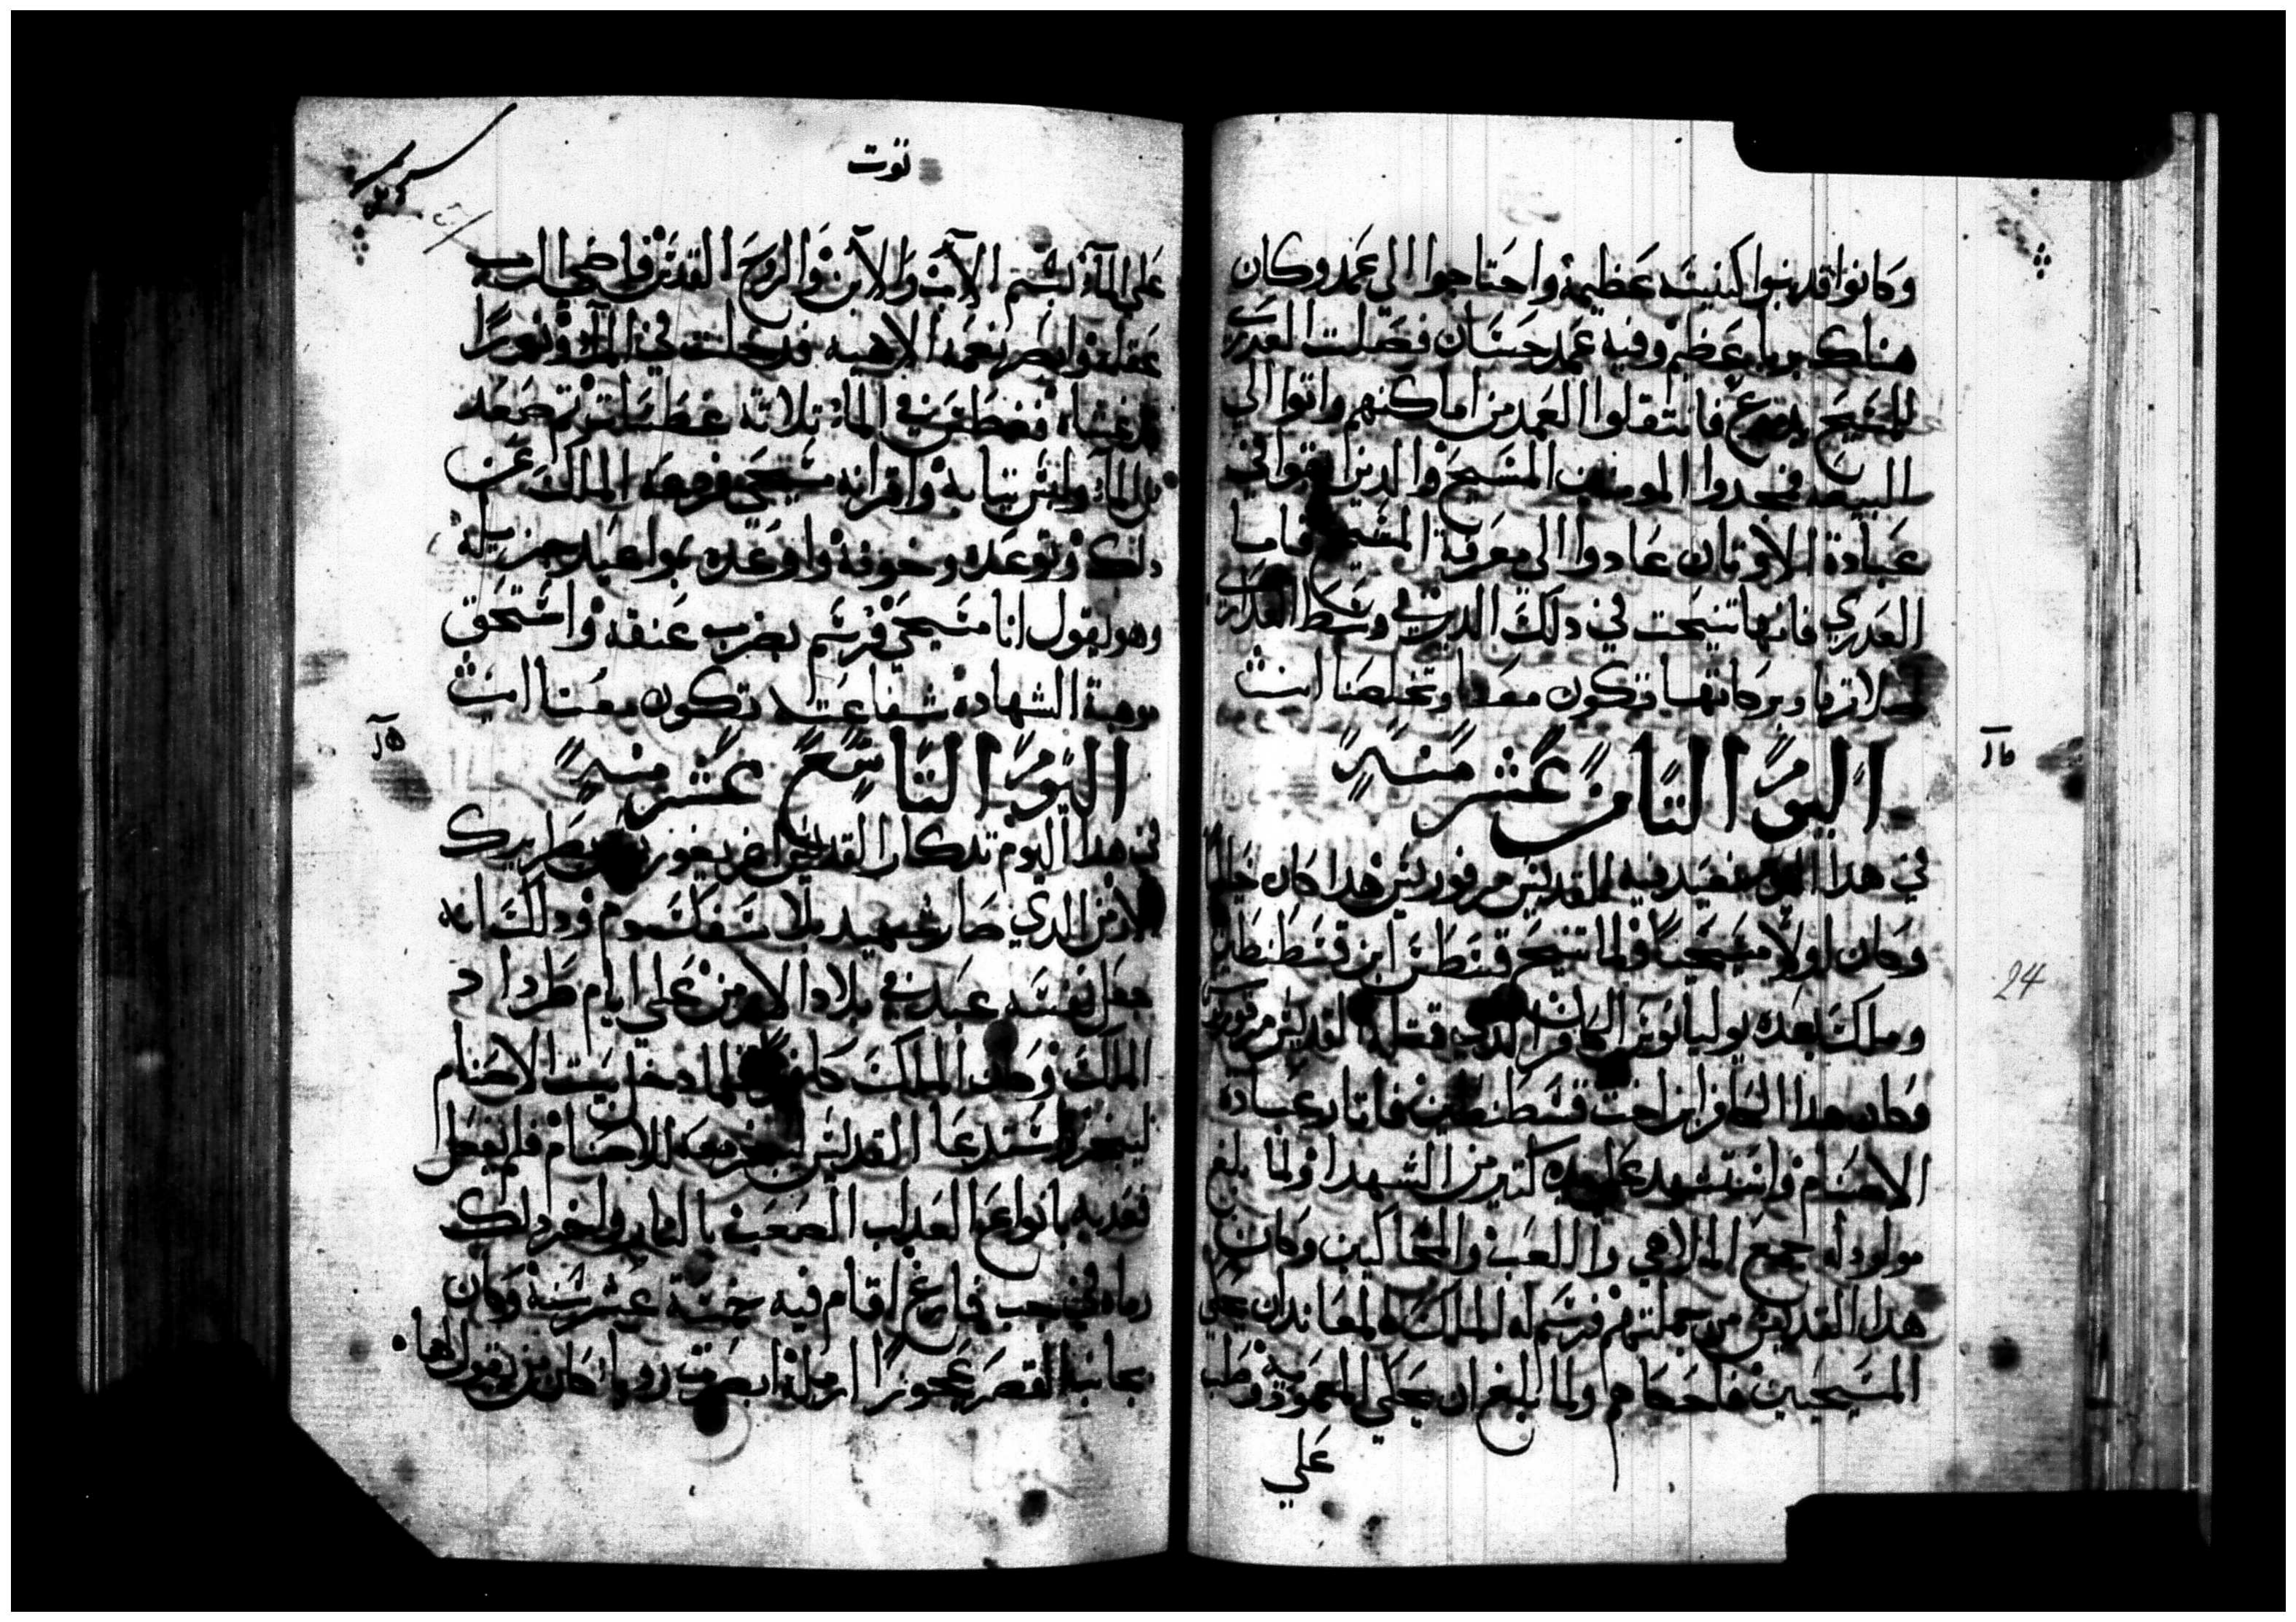 وكانوا قد بنوا كنيسَه عَظيمة واحتاجوا الي عَمد وكان
هناك بربا عَظم وفيه عَمد حسَان فصَلت العَدري
للمسَيحَ فانتقلوا العَمد من اماكنهم واتوا الي
البيعه فمجدوا المومنين المسَيحَ والدين في
عبادة الاوتان عَادوا الي معَرفة المسَيح فاما
العَدري فانها تنيحَت في دلكَ الدير في وسَط العَداري
صلاتها وبركاتها تكون معَنا وتخلصَنا امين
اليوم التامن عَشر منه
في هدا اليوم نعَيد فيه للقديس مرقوريس هدا كان
وكان اولاً مسَيحَياً ولما تنيحَ قسَطنس ابن قسَطنطين
وملك بعَده يوليانوس الكافر الدي قتله القديس مرقوريوس
وكان هدا الكافر ابن اخت قسَطنطين فاتار عبادة
الاصنام واستشهد علي يده كتير من الشهدا ولما بلغ
مولوده جمع الملاهي واللعَب والمخاكين وكان
هدا القديس من جملتهم فرسَم له الملك المعَاند ان يحَكي
المسَيحَيين فاحَكاهم ولما بلغ ان يحَكي المعموديه وصَلب
عَلي
توت
عَلي الماء بسَم الاب والابن والروحَ القدس فاضي الرب
عَقله وابصَر نعَمه الاهيه قد حَلت في الماء ونوراً
قد غشاه فغطس في الماء تلاتة غطسَات تم صَعَد
من الماء ولبس تيابه واقر انه مسَيحَي فرفعَه الملك عَن
دلك وتوعَده وخوفه واوعَده بمواعَيد جزيله
وهو يقول انا مسَيحَي فرسَم بضرب عَنقه واستحَق
موهبة الشهادة شفاعَته تكون معَنا امين
اليوم التاسَع عَشر منه
في هدا اليوم تدكار القديس اغريغوريوس بطريرك
الارمن الدي صَار شهيد بلا سَفك دم ودلكَ انه
جعَل نفسَه عبد في بلاد الارمن عَلي ايام طَرداد
الملك وكان الملك كافر فلما دخل بيت الاصنام
ليبخر استدعَا القديس ليبخر معَه للاصنام فلم يفعَل
فعَدبه بانواعَ العَداب الصعَبه بالنار ولخر دلك
رماه في جب فارغ اقام فيه خمسَة عشر سَنة وكان
بجانب القصَر عَجوزا ارمله ابصَرت رويا كان من يقول لها